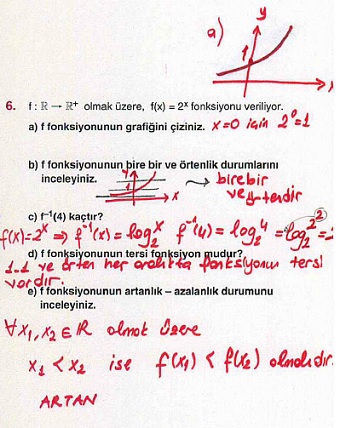 a)
y
1
x
6. f : ℝ → ℝ⁺ olmak üzere, f(x) = 2ˣ fonksiyonu veriliyor.
a) f fonksiyonunun grafiğini çiziniz. x=0 için 2⁰=1
b) f fonksiyonunun bire bir ve örtenlik durumlarını
inceleyiniz. y x → birebir
ve örtendir
c) f⁻¹(4) kaçtır?
f(x)=2ˣ ⇒ f⁻¹(x) = log₂x f⁻¹(4) = log₂4 = log₂2² = 2
d) f fonksiyonunun tersi fonksiyon mudur?
1-1 ve örten her aralıkta fonksiyonun tersi
vardır.
e) f fonksiyonunun artanlık – azalanlık durumunu
inceleyiniz.
∀x₁, x₂ ∈ ℝ olmak üzere
x₁ < x₂ ise f(x₁) < f(x₂) olmalıdır.
ARTAN